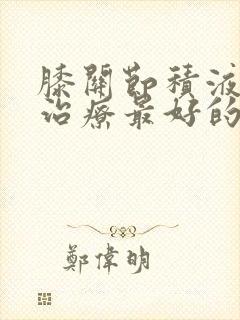 膝關節積液
治療最好的
鄭偉明